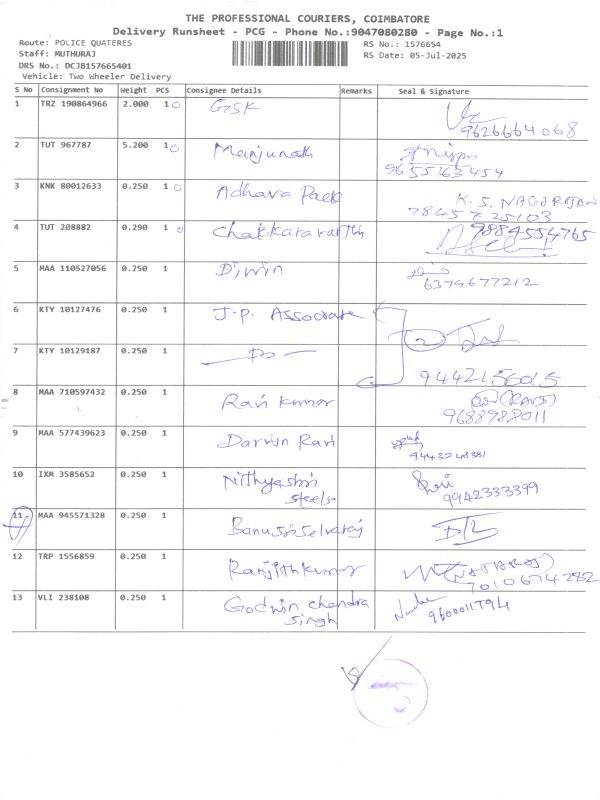 THE PROFESSIONAL COURIERS, COIMBATORE
Delivery Runsheet - PCG - Phone No.:9047080280 - Page No.:1
Route: POLICE QUATERES
RS No.: 1576654
Staff: MUTHURAJ
RS Date: 05-Jul-2025
DRS No.: DCJB157665401
Vehicle: Two Wheeler Delivery
S No Consignment No Weight PCS Consignee Details Remarks Seal & Signature
1 TRZ 190864966 2.000 1 GSK
9626664068
2 TUT 967787 5.200 1 Manjunath
9655163454
3 KNK 80012633 0.250 1 Adhava Pack K. S. NAGARAJAN
7845725103
4 TUT 208882 0.290 1 9884554765
5 MAA 110527056 0.250 1 Diwin
6374677212
6 KTY 10127476 0.250 1 J.P. Associate
7 KTY 10129187 0.250 1 — Do —
9442156015
8 MAA 710597432 0.250 1 Ravi Kumar (RAVI)
9688988011
9 MAA 577439623 0.250 1 Darwin Ravi
9443248381
10 IXM 3585652 0.250 1 Nithyashri
steels 9942333399
11 MAA 945571328 0.250 1 Banusriselvaraj
12 TRP 1556859 0.250 1 Ranjithkumar (NATARAJ)
7010674242
13 VLI 238108 0.250 1 Godwin chandra
singh